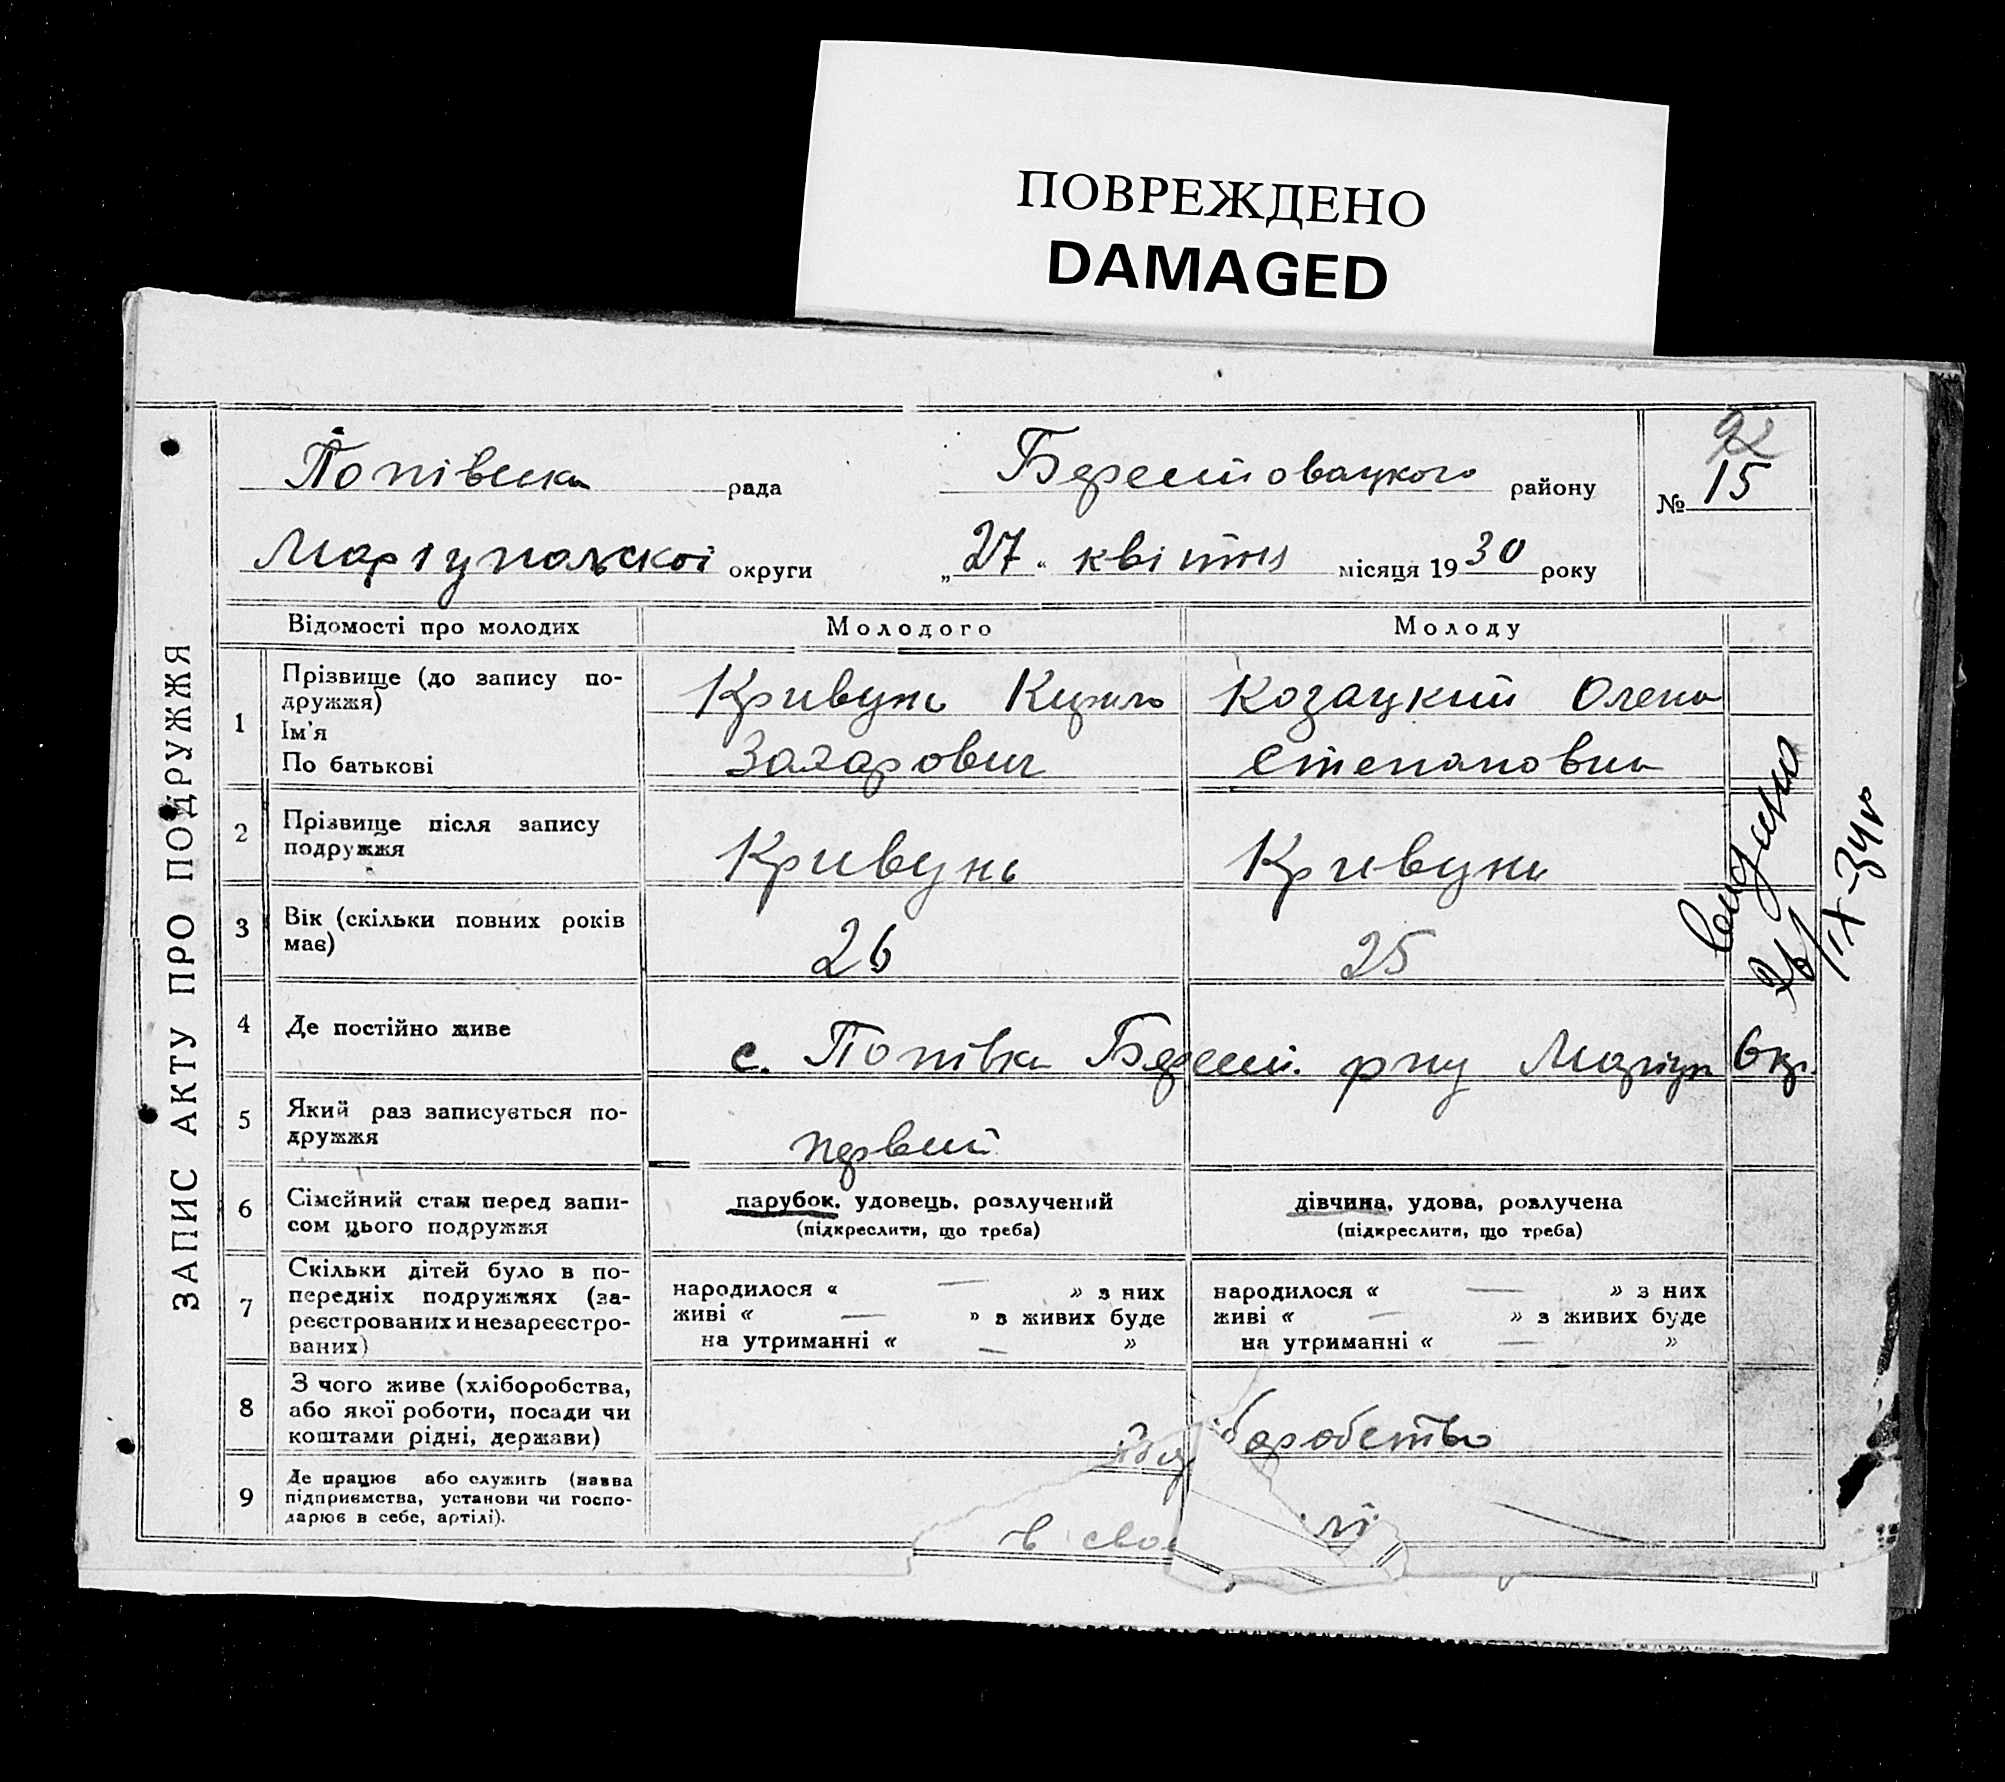 ПОВРЕЖДЕНО
DAMAGED
ЗАПИС АКТУ ПРО ПОДРУЖЖЯ
Попівська рада Берестовацького району
№ 15
Маріупольскої округи „27“ квітня місяця 1930 року
Відомості про молодих Молодого Молоду
1 Прізвище (до запису по-
дружжя)
Ім'я
По батькові
Кривунь Кирило
Захарович
Козацкий Олена
Степановна
2 Прізвище після запису
подружжя
Кривунь Кривунь
3 Вік (скільки повних років
має)
26 25
4 Де постійно живе
с. Попівка Берест. рну Маріуп Окр.
5 Який раз записується по-
дружжя
первий
6 Сімейний стан перед запи-
сом цього подружжя
парубок, удовець, розлучений
(підкреслити, що треба)
дівчина, удова, розлучена
(підкреслити, що треба)
7 Скільки дітей було в по-
передніх подружжях (за-
реєстрованих и незареєстро-
ваних)
народилося « — » з них
живі « — » з живих буде
на утриманні « — »
народилося « — » з них
живі « — » з живих буде
на утриманні « — »
8 З чого живе (хліборобства,
або якої роботи, посади чи
коштами рідні, держави)
боробство
9 Де працює або служить (назва
підприємства, установи чи госпо-
дарює в себе, артілі).
в сво
лі
26/IX-34 г